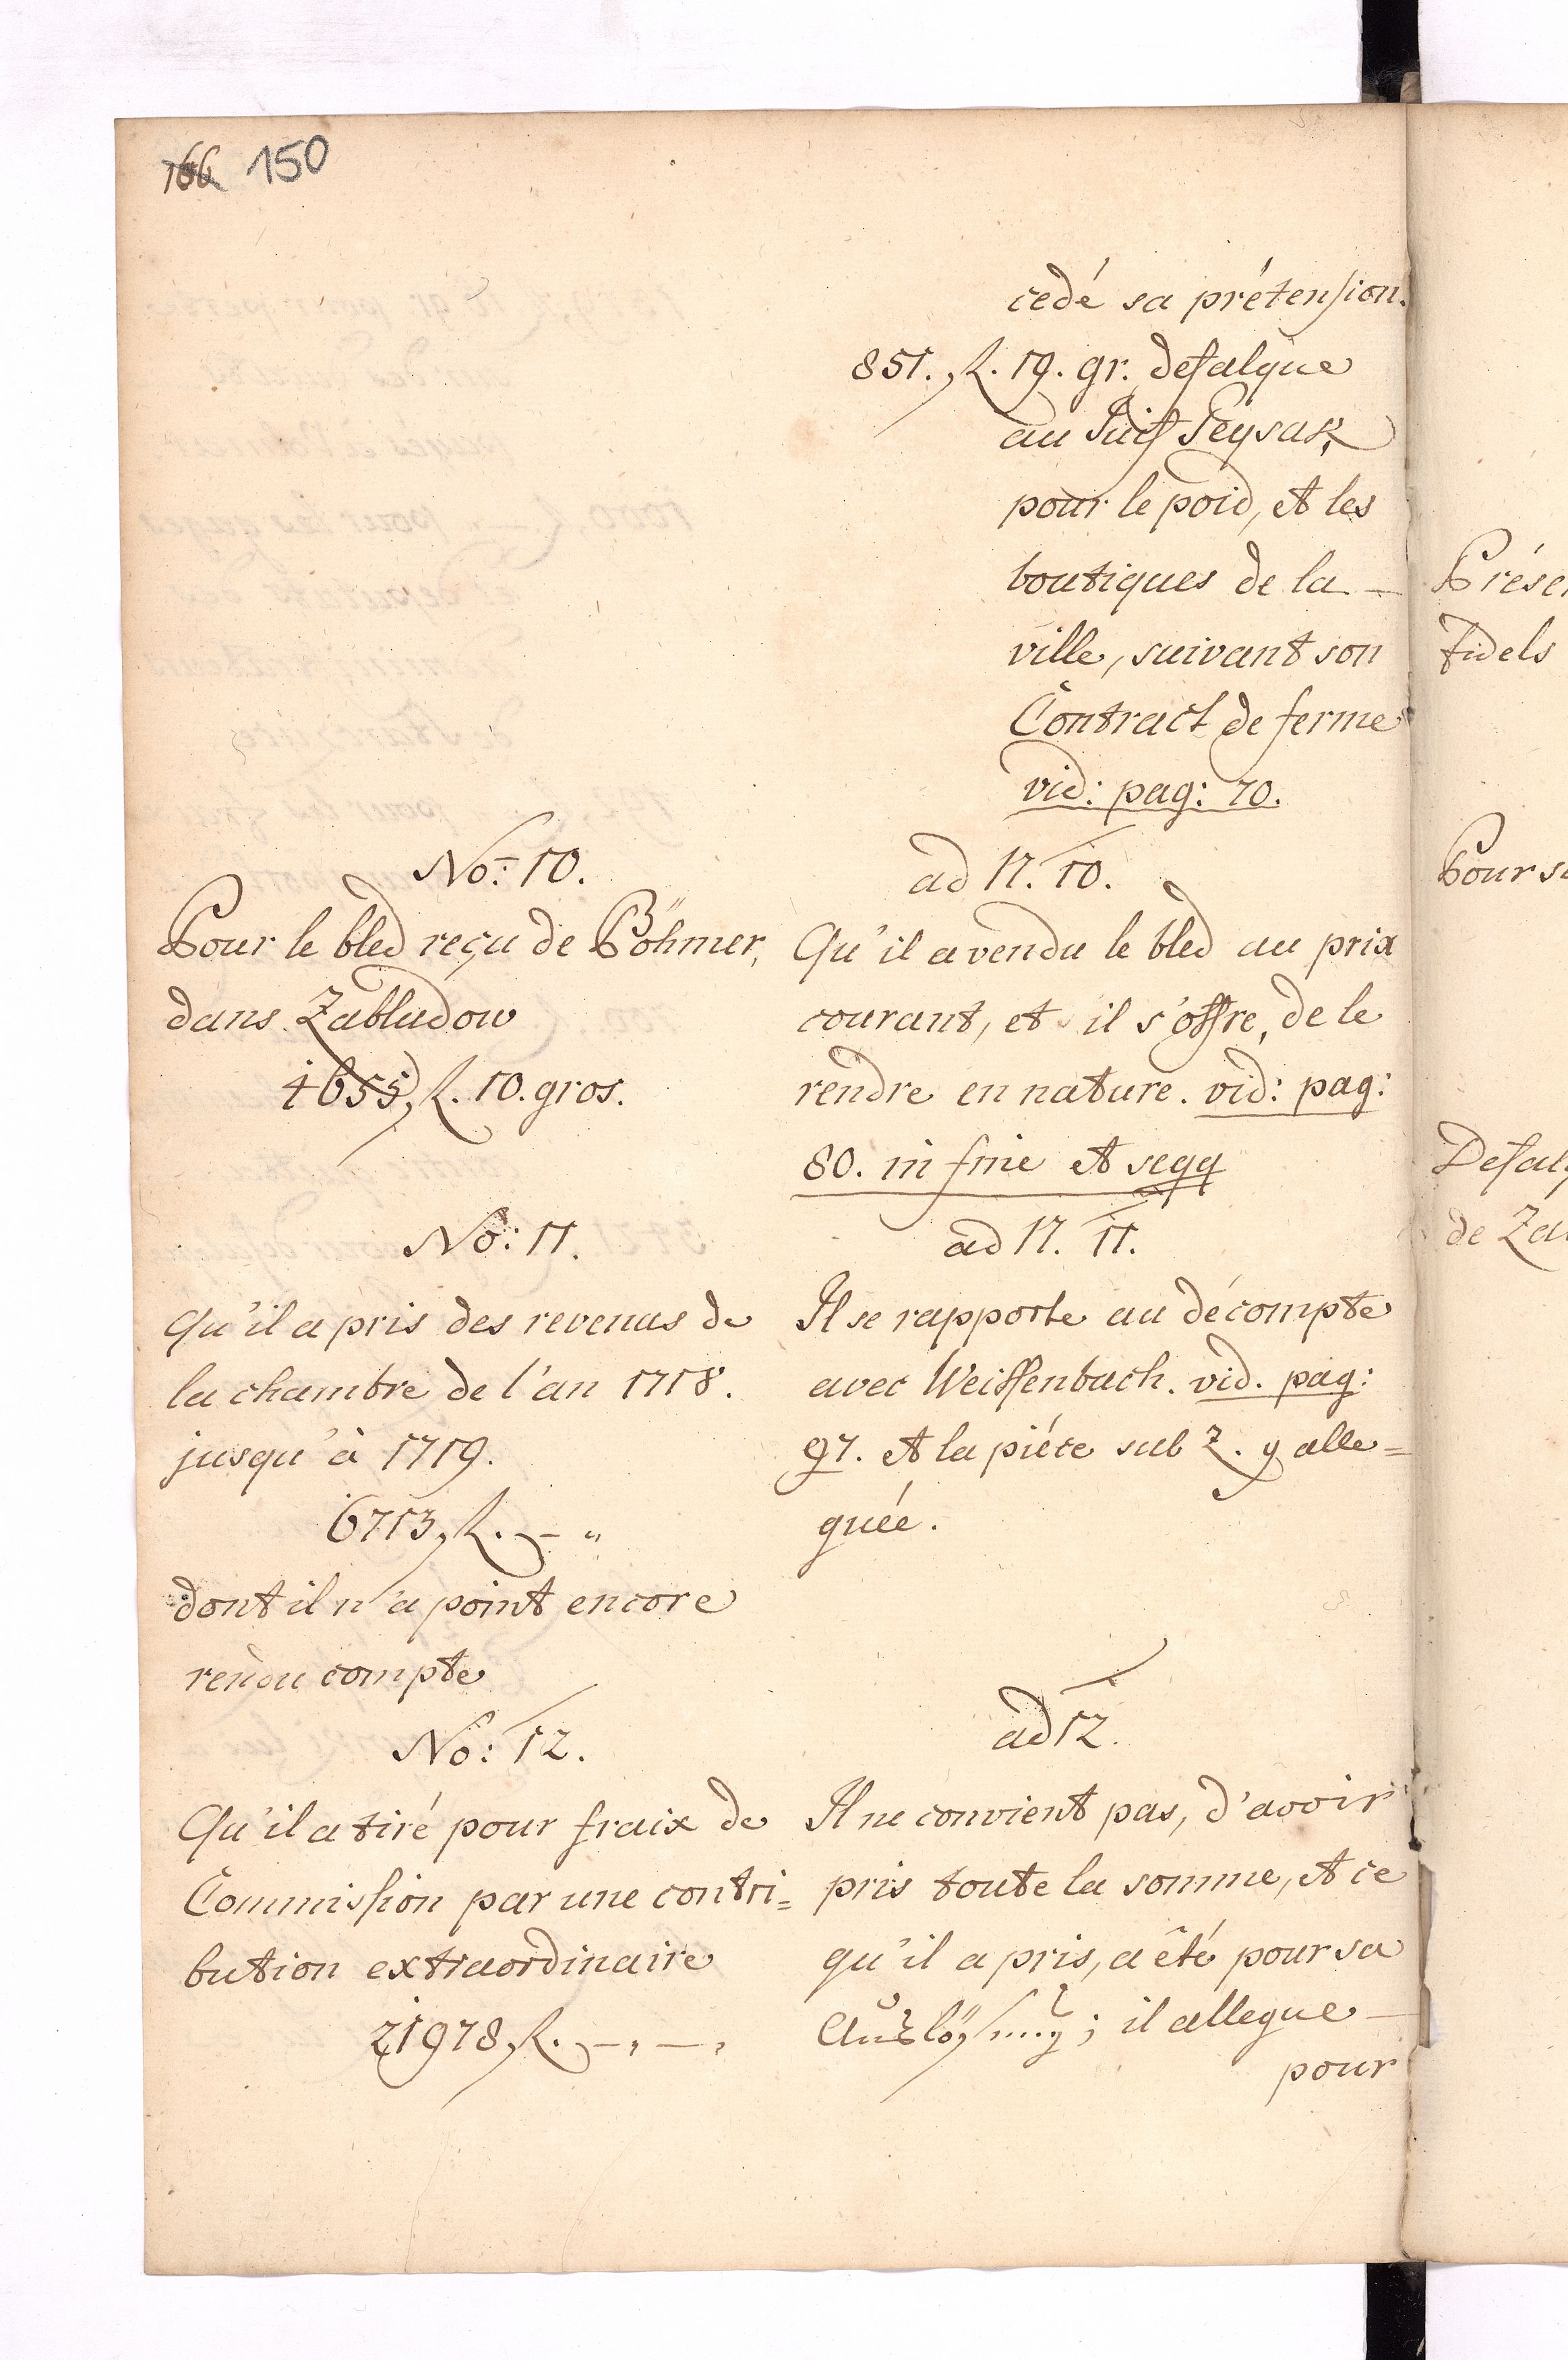 166 150
cedé sa prétension.
851. fl. 19. gr. defalque
au Juif Peysak,
pour le poid, et les
boutiques de la
ville, suivant son
Contract de ferme
vid: pag: 70.
No: 10.
Pour le bled reçu de Böhmer,
dans Zabludow
4655 fl. 10. gros.
No: 11.
Qu'il a pris des revenus de
la chambre de l'an 1718.
jusqu'à 1719.
6713 fl. – "
dont il n'a point encore
rendu compte
No: 12.
Qu'il a tiré pour fraix de
Commission par une contri=
bution extraordinaire
21978 fl. –, –,
ad N. 10.
Qu'il a vendu le bled au prix
courant, et il s'offre, de le
rendre en nature. vid: pag:
80. in fine et seqq
ad N. 11.
Il se rapporte au décompte
avec Weissenbach. vid. pag:
97. et la piéce sub Z. y alle=
guée.
ad 12.
Il ne convient pas, d'avoir
pris toute la somme, et ce
qu'il a pris, a êté pour sa
Auslösung; il allegue
pour
Prése
fidels
Pour s
Defal
de Za